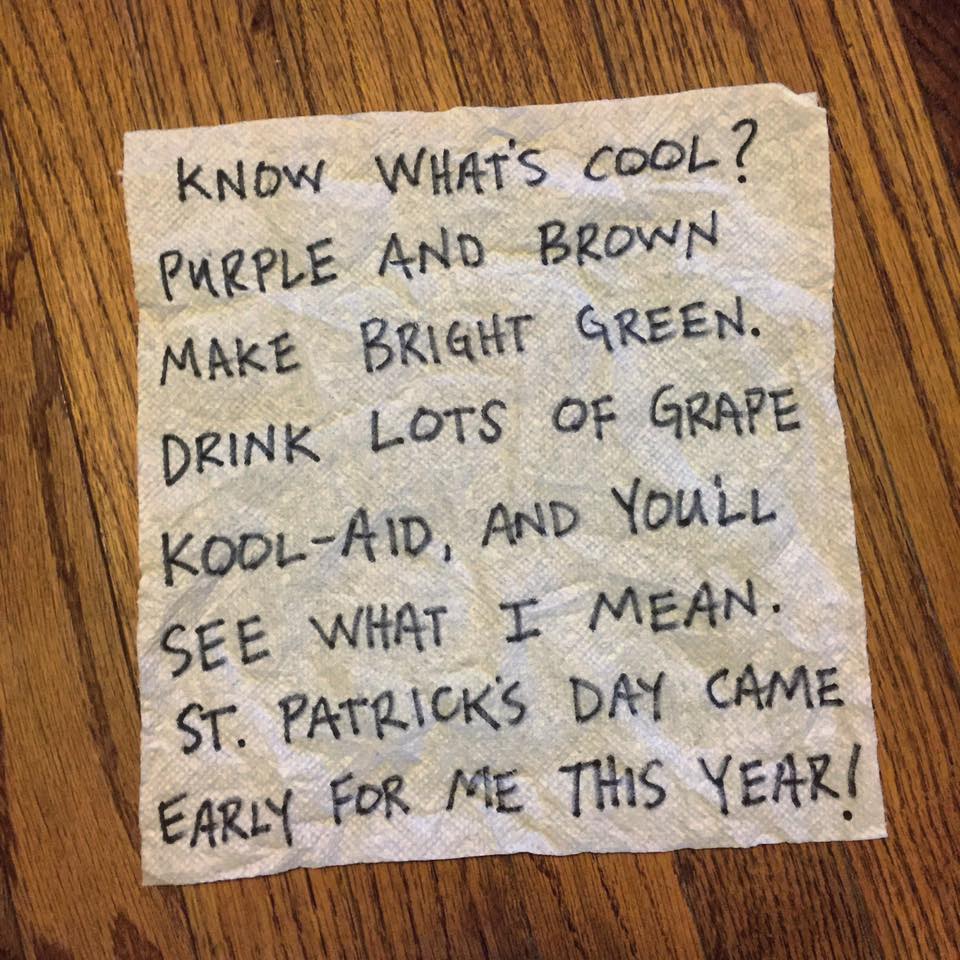 KNOW WHAT'S COOL?
PURPLE AND BROWN
MAKE BRIGHT GREEN.
DRINK LOTS OF GRAPE
KOOL-AID, AND YOU'LL
SEE WHAT I MEAN.
ST. PATRICK'S DAY CAME
EARLY FOR ME THIS YEAR!